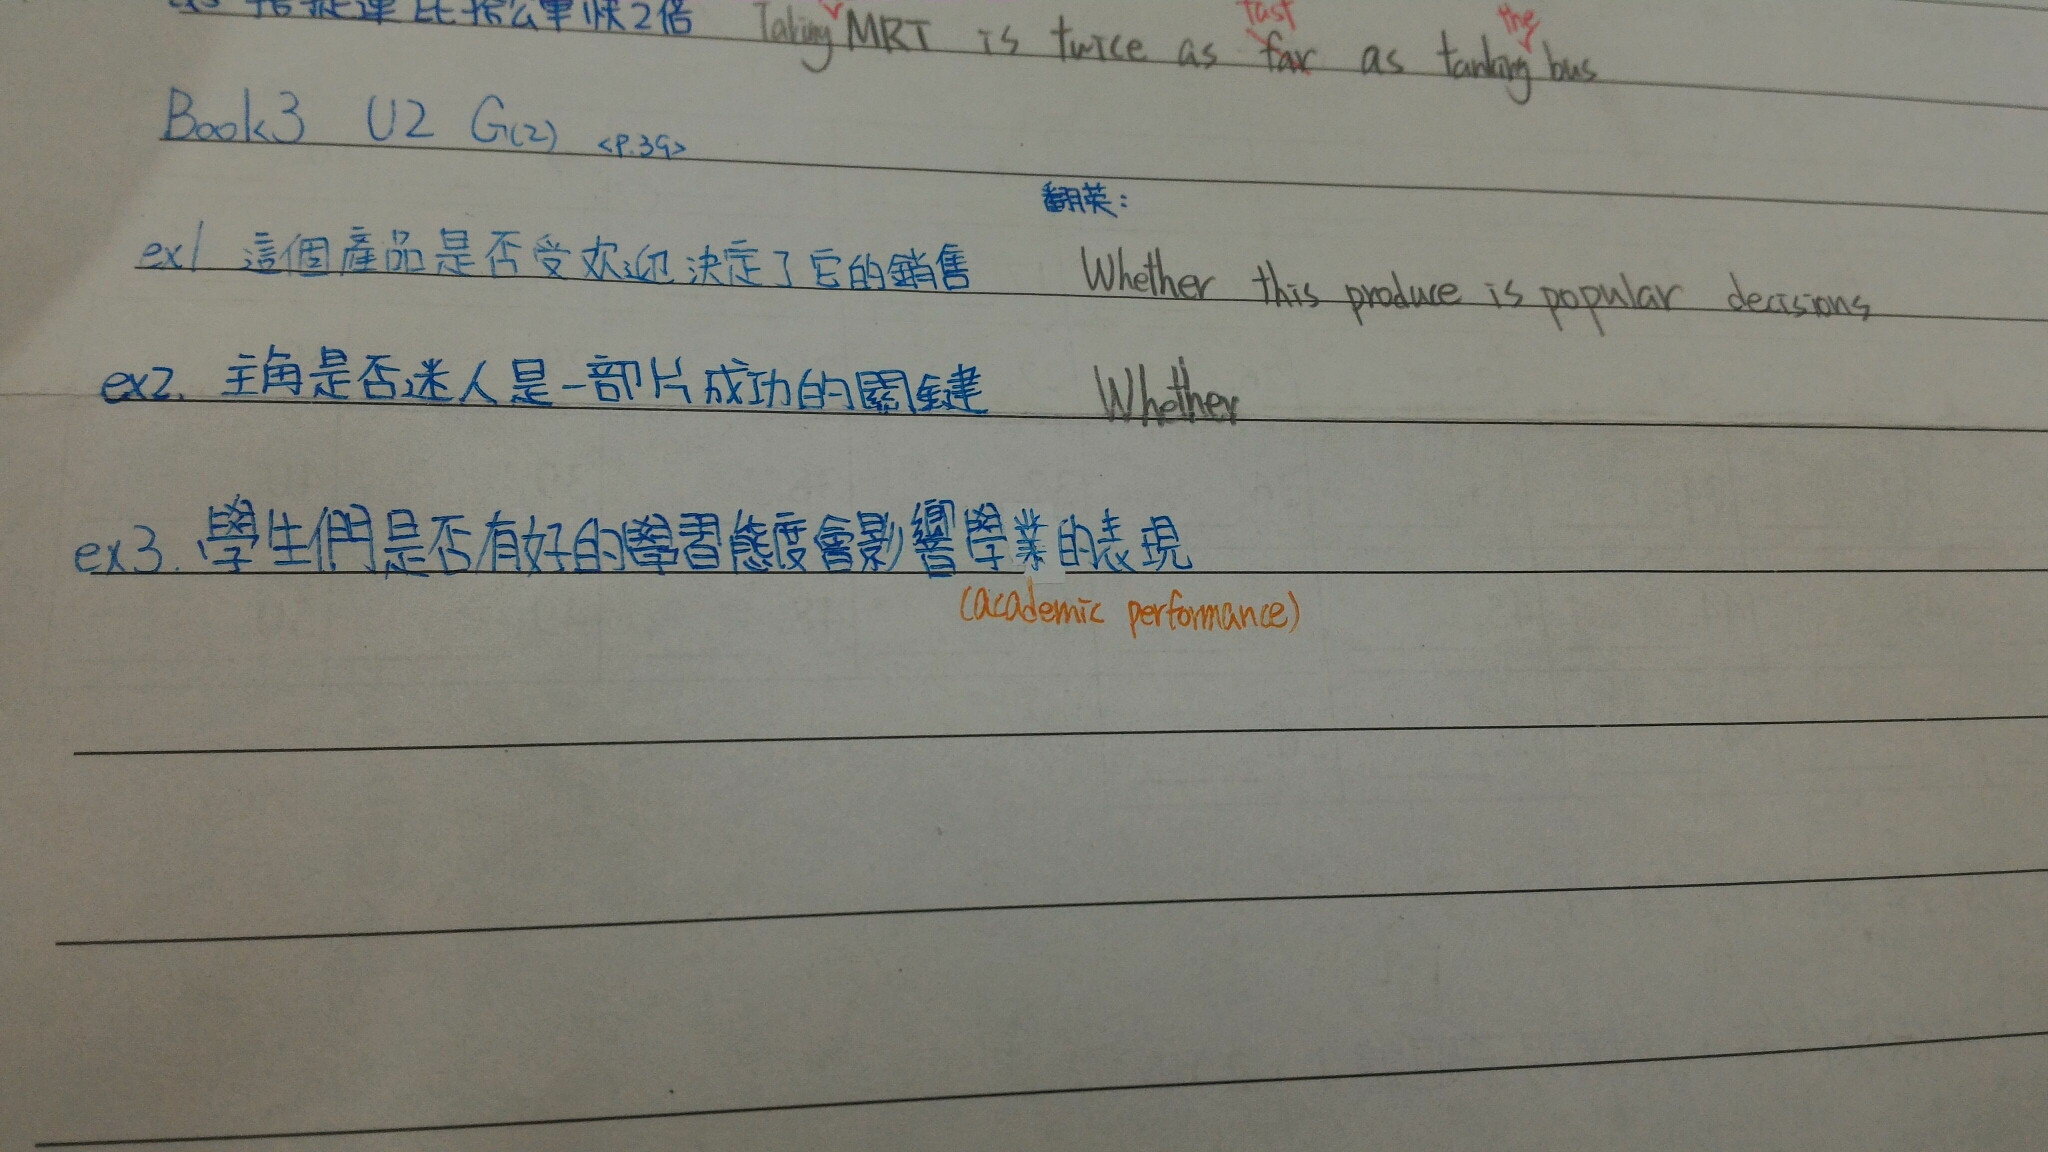 搭捷運比搭公車快2倍 Taking MRT is twice as far as tanking bus
fast
the
Book3 U2 G(2) <P.39>
翻英:
ex1 這個產品是否受欢迎決定了它的銷售 Whether this produce is popular decisions
ex2. 主角是否迷人是一部片成功的關鍵 Whether
ex3. 學生們是否有好的學習態度會影響學業的表現
(academic performance)